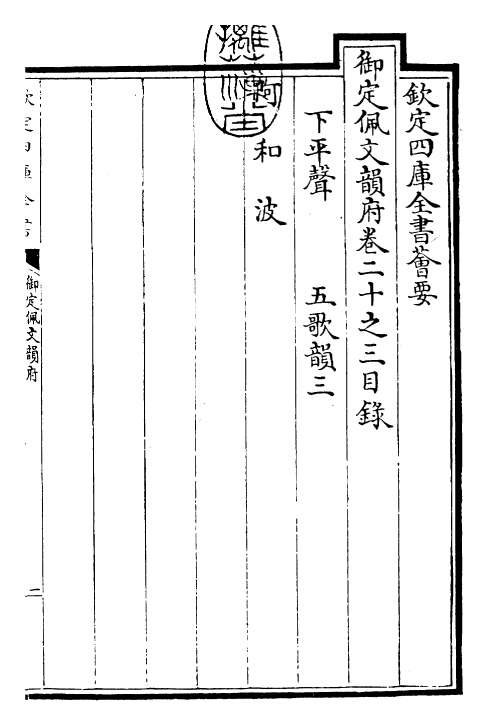 欽定四庫全書薈要
御定佩文韻府卷二十之三目錄
下平聲　五歌韻三
柯　和　波
御定佩文韻府
二